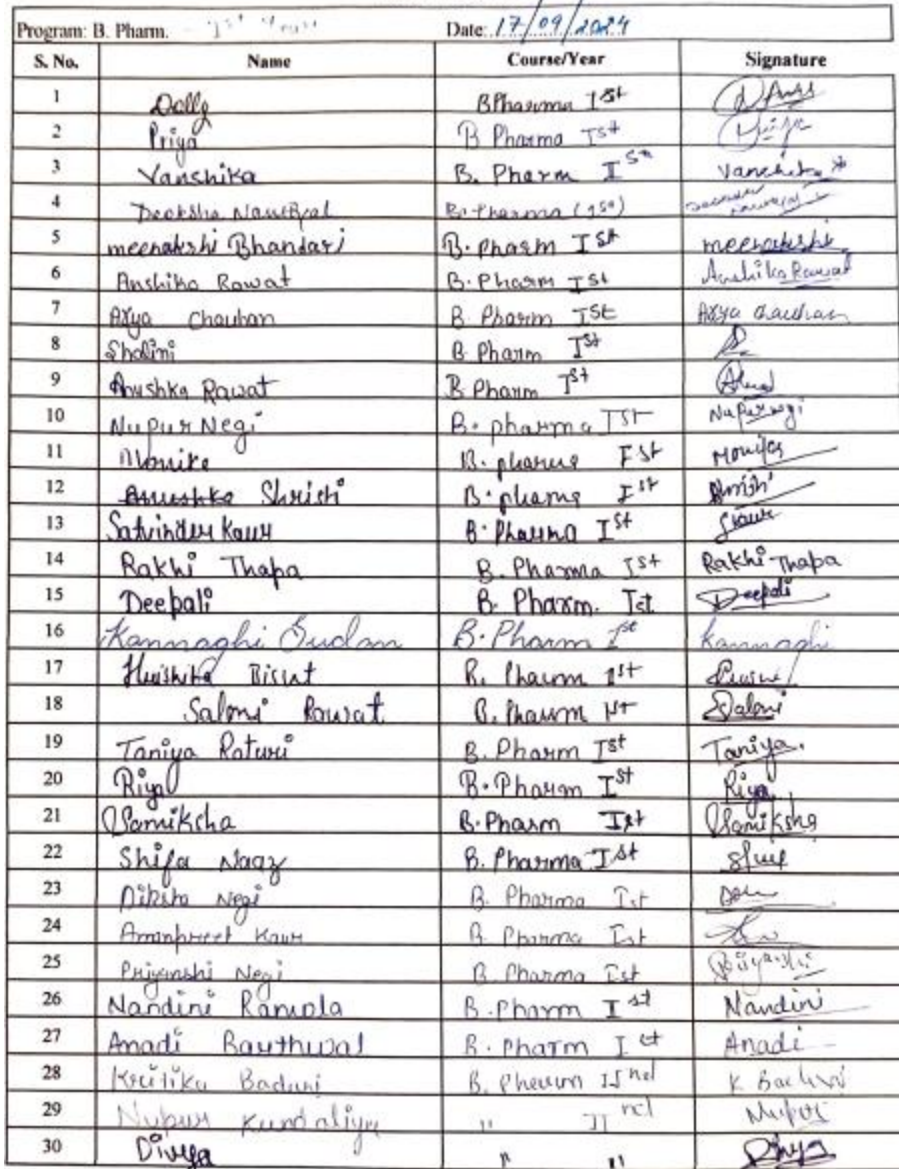 Program: B. Pharm. Ist Year Date: 17/09/2024
S. No. Name Course/Year Signature
1 Dolly BPharma Ist
2 Priya B Pharma Ist
3 Vanshika B. Pharm Ist Vanshika
4 Deeksha Nautiyal B. Pharma (1st)
5 meenakshi Bhandari B. Pharm Ist meenakshi
6 Anshika Rawat B. Pharm Ist Anshika Rawat
7 Arya Chauhan B. Pharm Ist Arya Chauhan
8 Shalini B Pharm Ist
9 Anushka Rawat B Pharm Ist
10 Nupur Negi B. pharma Ist Nupurnegi
11 Monika B. pharma Ist Monika
12 Anushka Shristi B. pharma Ist
13 Satvinder Kaur B. Pharma Ist
14 Rakhi Thapa B. Pharma Ist Rakhi Thapa
15 Deepali B. Pharm. Ist Deepali
16 Kannaghi Sudan B. Pharm Ist Kannaghi
17 Bisht B. Pharm 1st
18 Saloni Rawat B. Pharm 1st Saloni
19 Taniya Raturi B. Pharm Ist Taniya.
20 Riya B. Pharm Ist Riya
21 Samiksha B. Pharm Ist Samiksha
22 Shifa Naaz B. Pharma Ist
23 Diksha Negi B. Pharma Ist
24 Amanpreet Kaur B. Pharma Ist
25 Priyanshi Negi B. Pharma Ist Priyanshi
26 Nandini Ramola B. Pharm Ist Nandini
27 Anadi Barthwal B. Pharm Ist Anadi
28 Kritika Baduni B. Pharm IInd K Baduni
29 Nupur Kundaliya " IInd Nupur
30 Divya " " Divya